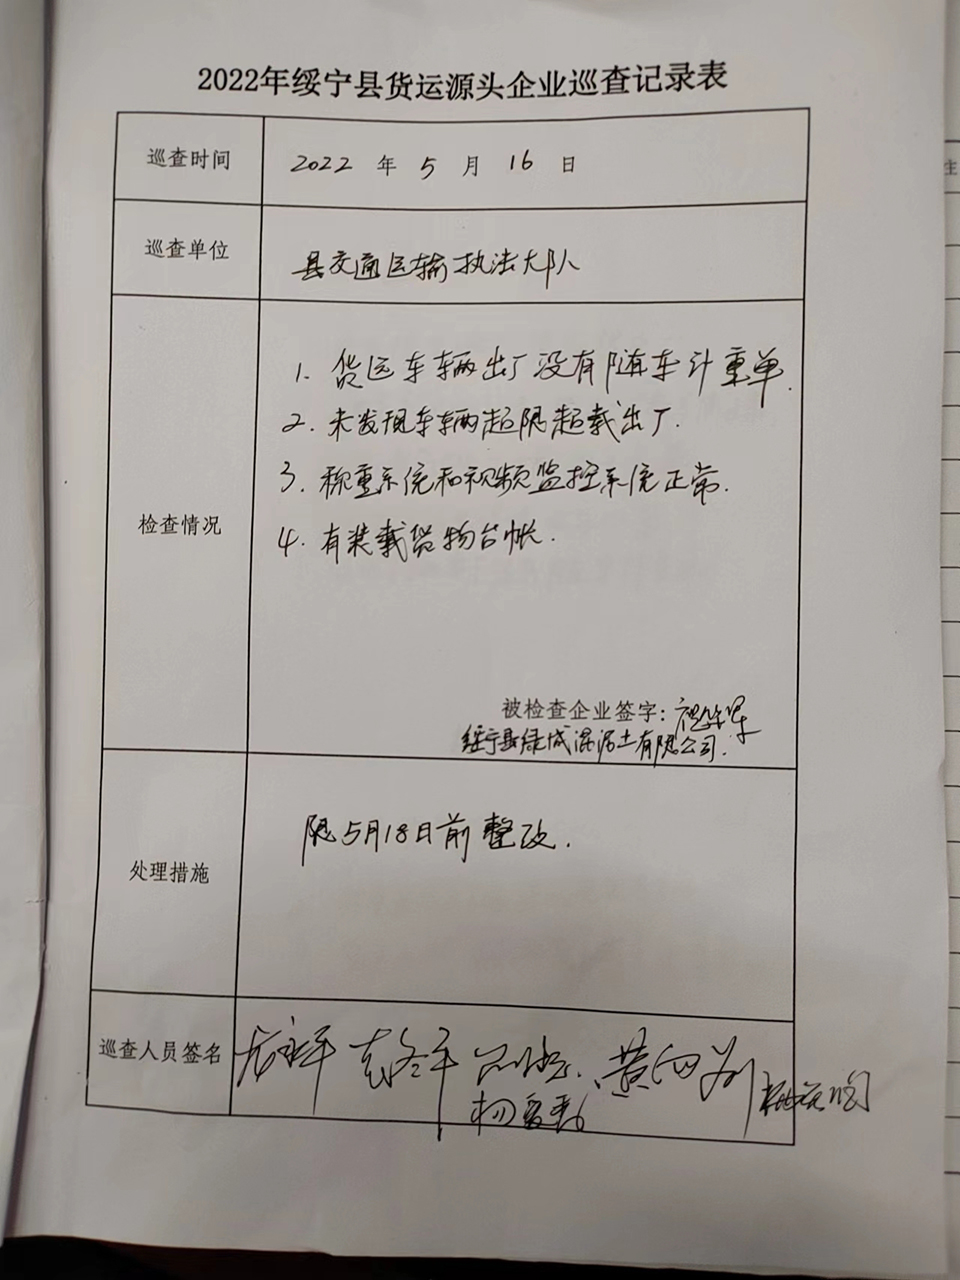 2022年绥宁县货运源头企业巡查记录表
巡查时间
2022 年 5 月 16 日
巡查单位
县交通运输执法大队
检查情况
1. 货运车辆出厂没有随车计重单.
2. 未发现车辆超限超载出厂.
3. 称重系统和视频监控系统正常.
4. 有装载货物台帐.
被检查企业签字:
绥宁县绿城混泥土有限公司.
处理措施
限5月18日前整改.
巡查人员签名